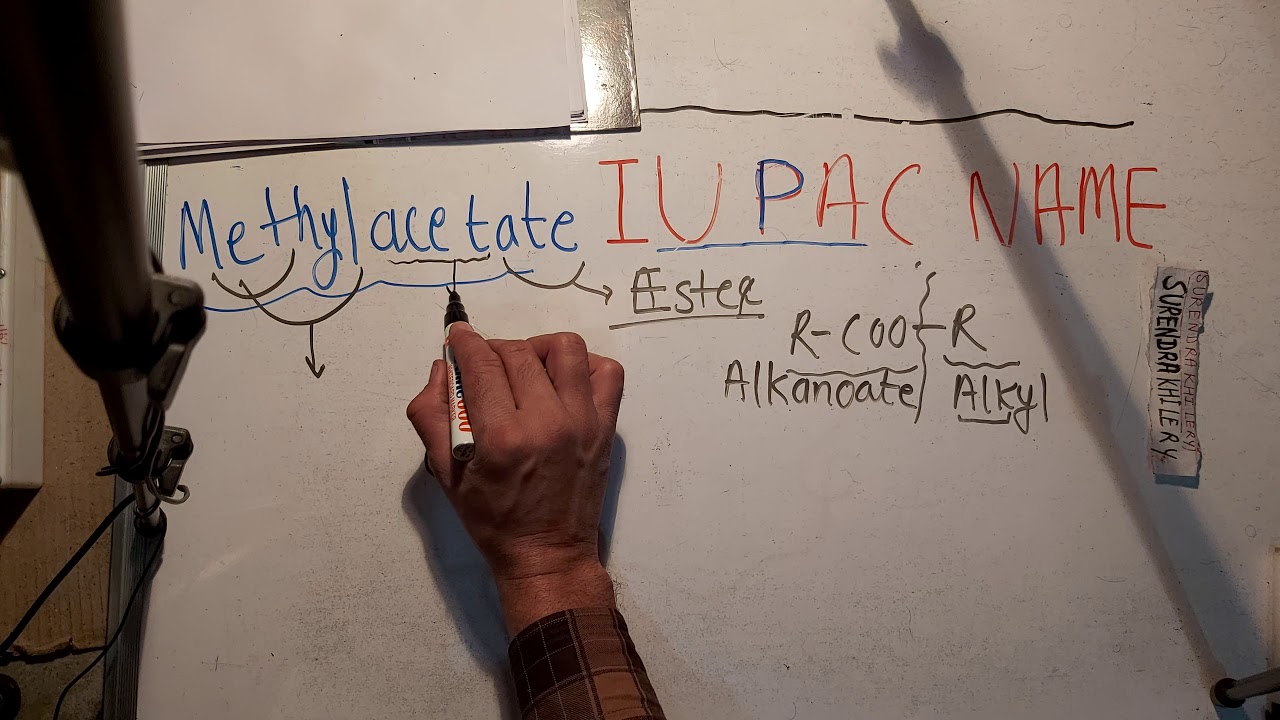 Methylacetate IUPAC NAME
Ester
R-COO-R
Alkanoate Alkyl
SURENDRAKHILERY
SURENDRAKHILERY